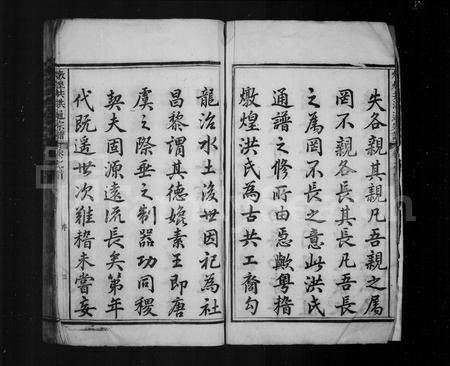 失各親其親凡吾親之属
罔不親各長其長凡吾長
之属罔不長之意此洪氏
通譜之修所由恧歟粵稽
敦煌洪氏為古共工裔勾
龍治水土後世因祀為社
昌黎謂其德媲素王即唐
虞之際垂之制器功同稷
契夫固源遠流長矣第年
代既遥世次難稽未嘗妄
敦煌洪氏通宗譜